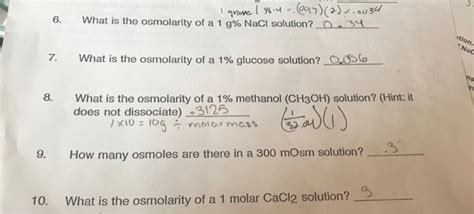 1 gram / 58.4 = (.017)(2) = .0034
6. What is the osmolarity of a 1 g% NaCl solution? 0.34
7. What is the osmolarity of a 1% glucose solution? 0.056
8. What is the osmolarity of a 1% methanol (CH3OH) solution? (Hint: it
does not dissociate) .3125
1 x 10 = 10g ÷ molar mass
9. How many osmoles are there in a 300 mOsm solution? .3
10. What is the osmolarity of a 1 molar CaCl2 solution? 3